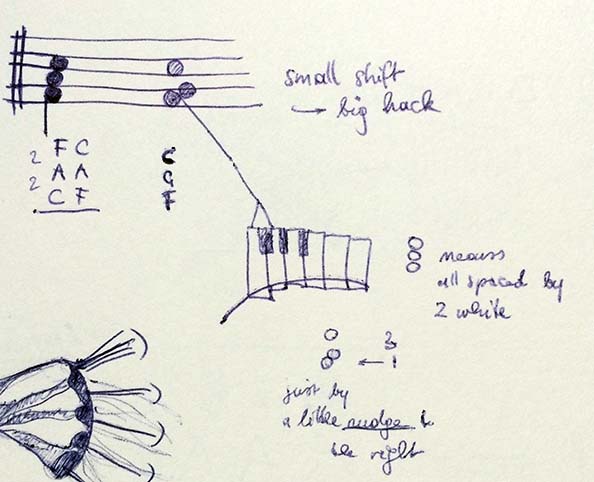 small shift
→ big hack
2 F C
2 A A
C F
C
G
F
means
all spaced by
2 white
3
← 1
just by
a little nudge to
the right